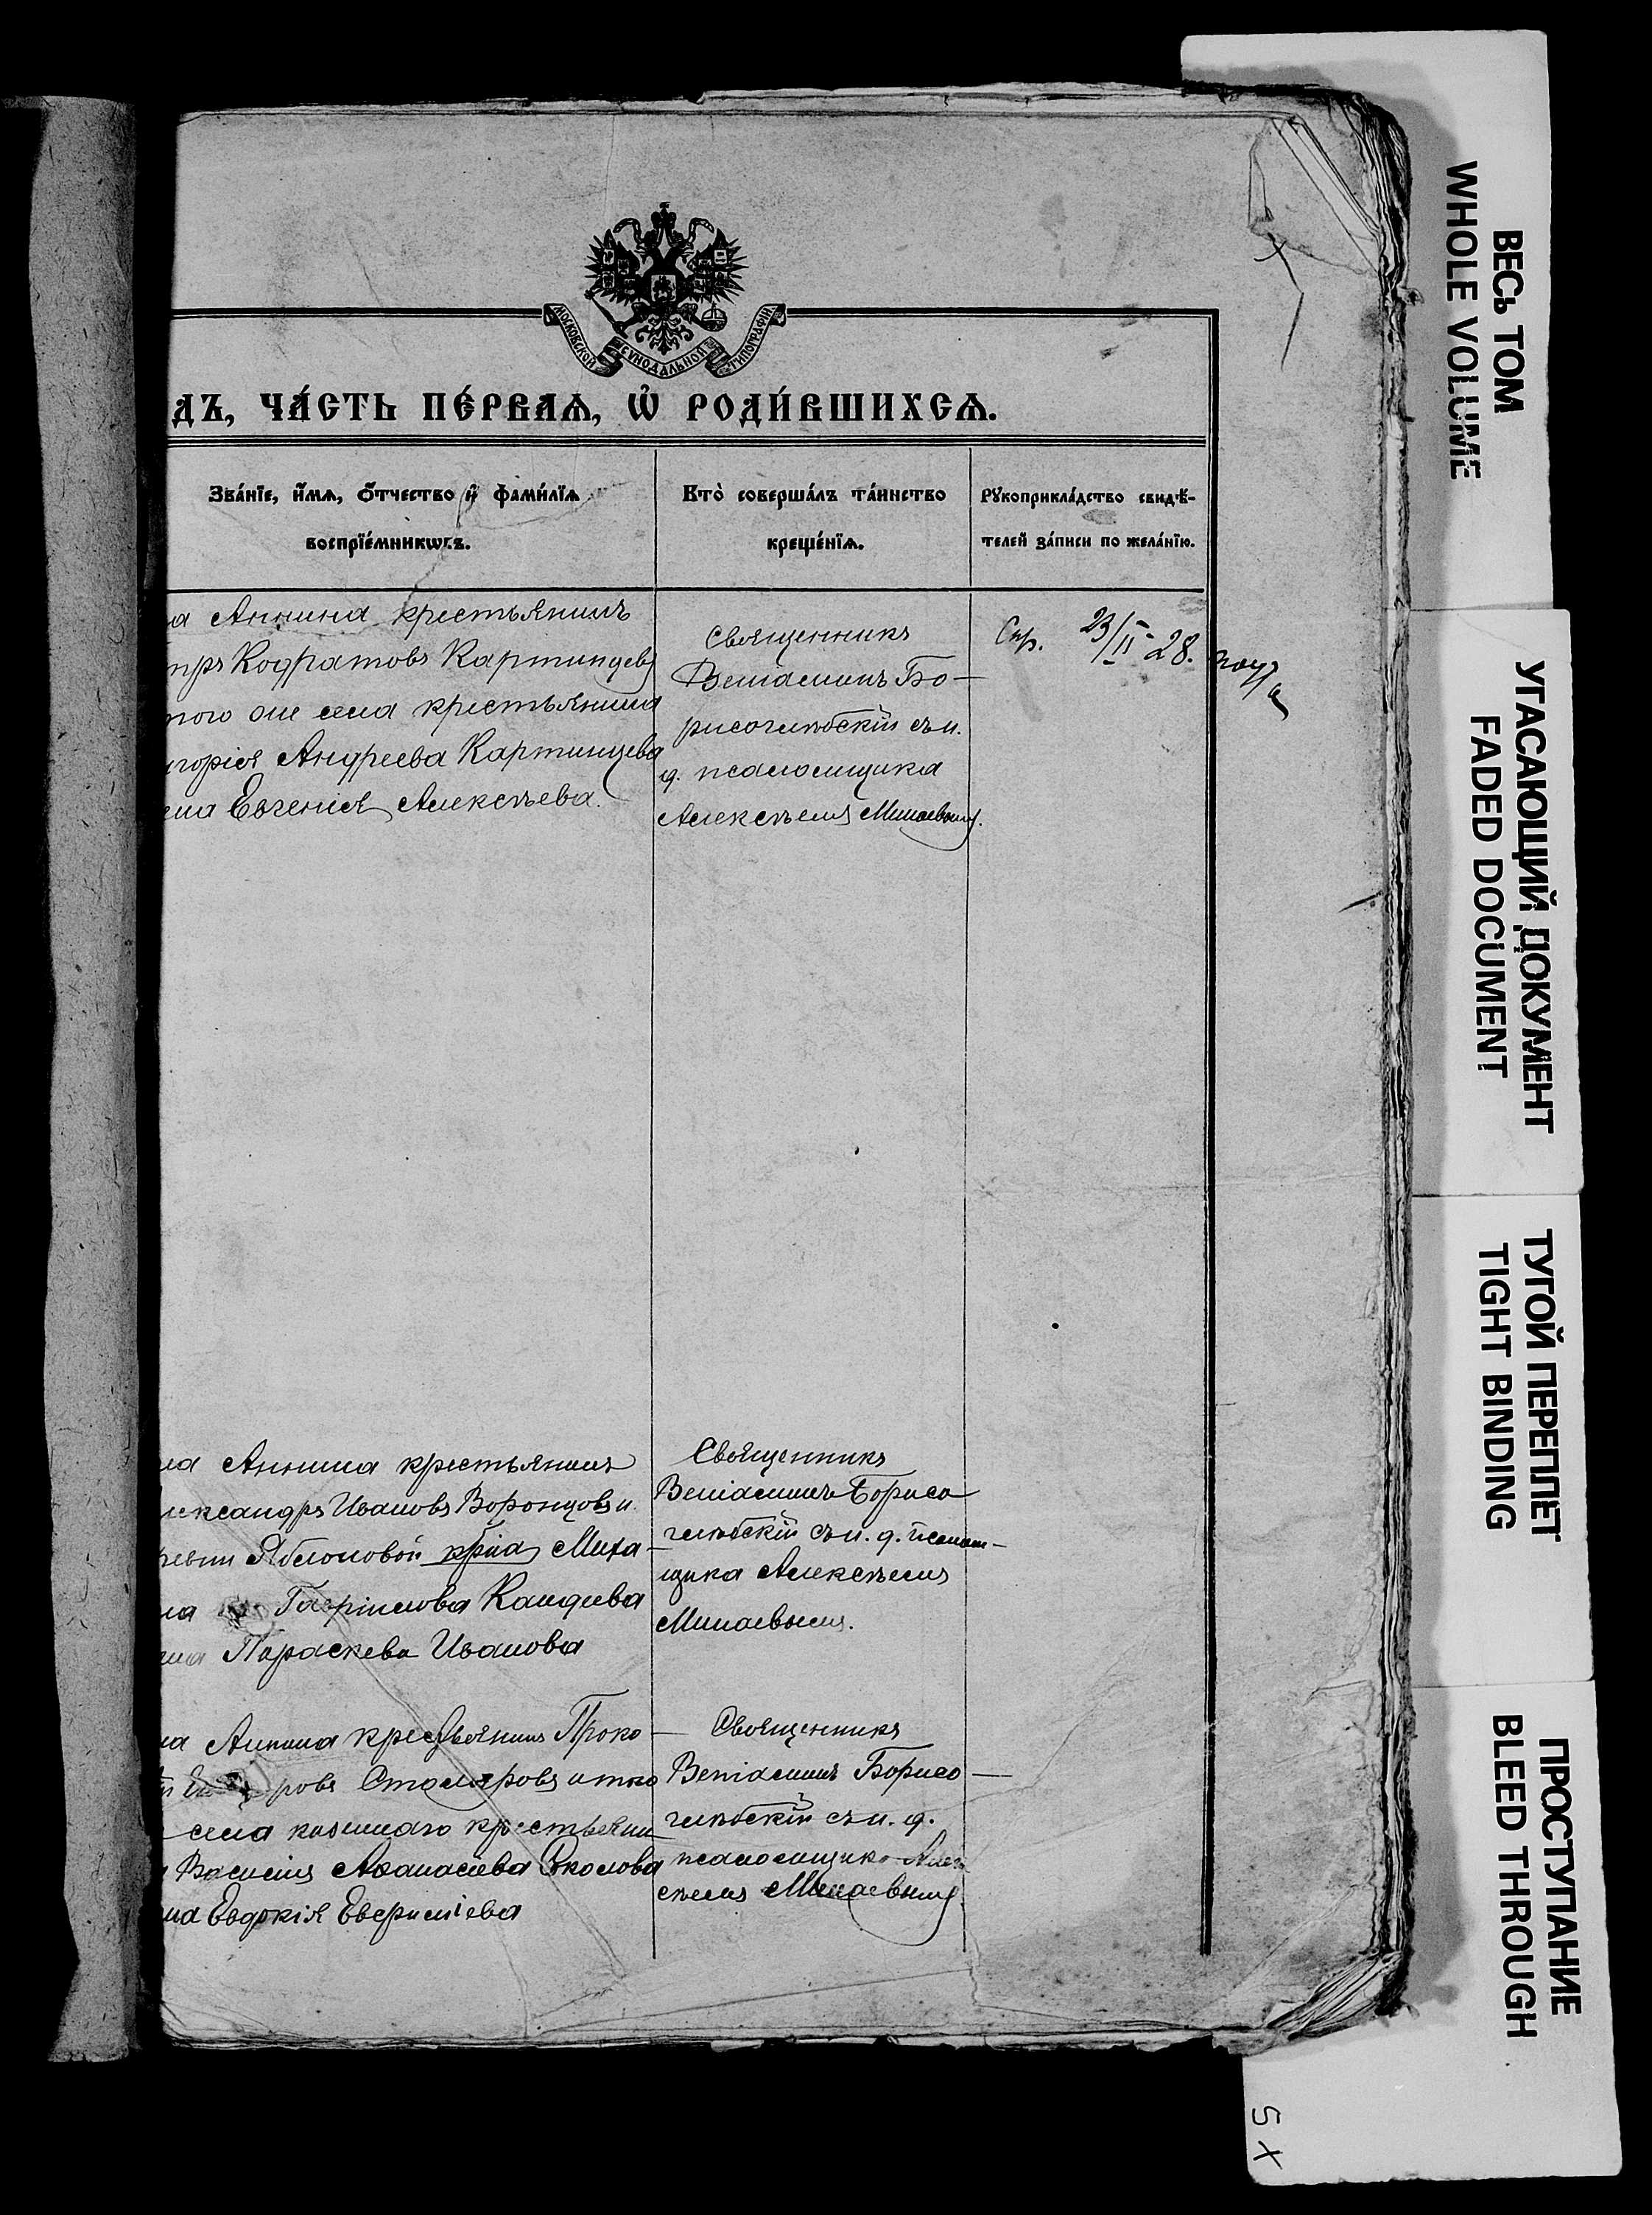 МОСКОВСКОЙ СѴНОДАЛЬНОЙ ТИПОГРАФІИ
ДЪ, ЧА́СТЬ ПЕ́РВАѦ, Ѡ҆ РОДИ́ВШИХСѦ.
Зва́нїе, и҆́мѧ, ѻ҆́тчество и҆ фами́лїѧ
воспрїе́мникѡвъ.
Кто̀ соверша́лъ та́инство
креще́нїѧ.
Рꙋкоприкла́дство свидѣ́-
телей за́писи по жела́нїю.
а Аннина крестьянинъ
тръ Кодратовъ Картинцевъ
того же села крестьянина
игорія Андреева Картинцева
ена Евгенія Алексѣева.
Священникъ
Веніаминъ Бо-
рисоглѣбскій съ и.
д. псаломщика
Алексѣемъ Минаевымъ.
Спр. 23/II-28.
ла Аннина крестьянинъ
лександръ Ивановъ Воронцовъ и
ревни Яблоновой кр-на Миха-
ла Гавріилова Кандиева
ена Параскева Иванова
Священникъ
Веніаминъ Борисо
глѣбскій съ и. д. псалом-
щика Алексѣемъ
Минаевымъ.
ла Аннина крестьянинъ Проко-
ровъ Столяровъ и того
села крестьянин
Василія Аѳанасіева Соколова
на Евдокія
Священникъ
Веніаминъ Борисо-
глѣбскій съ и. д.
псаломщика Алек
сѣемъ Минаевымъ.
ВЕСЬ ТОМ
WHOLE VOLUME
УГАСАЮЩИЙ ДОКУМЕНТ
FADED DOCUMENT
ТУГОЙ ПЕРЕПЛЕТ
TIGHT BINDING
ПРОСТУПАНИЕ
BLEED THROUGH
5 X